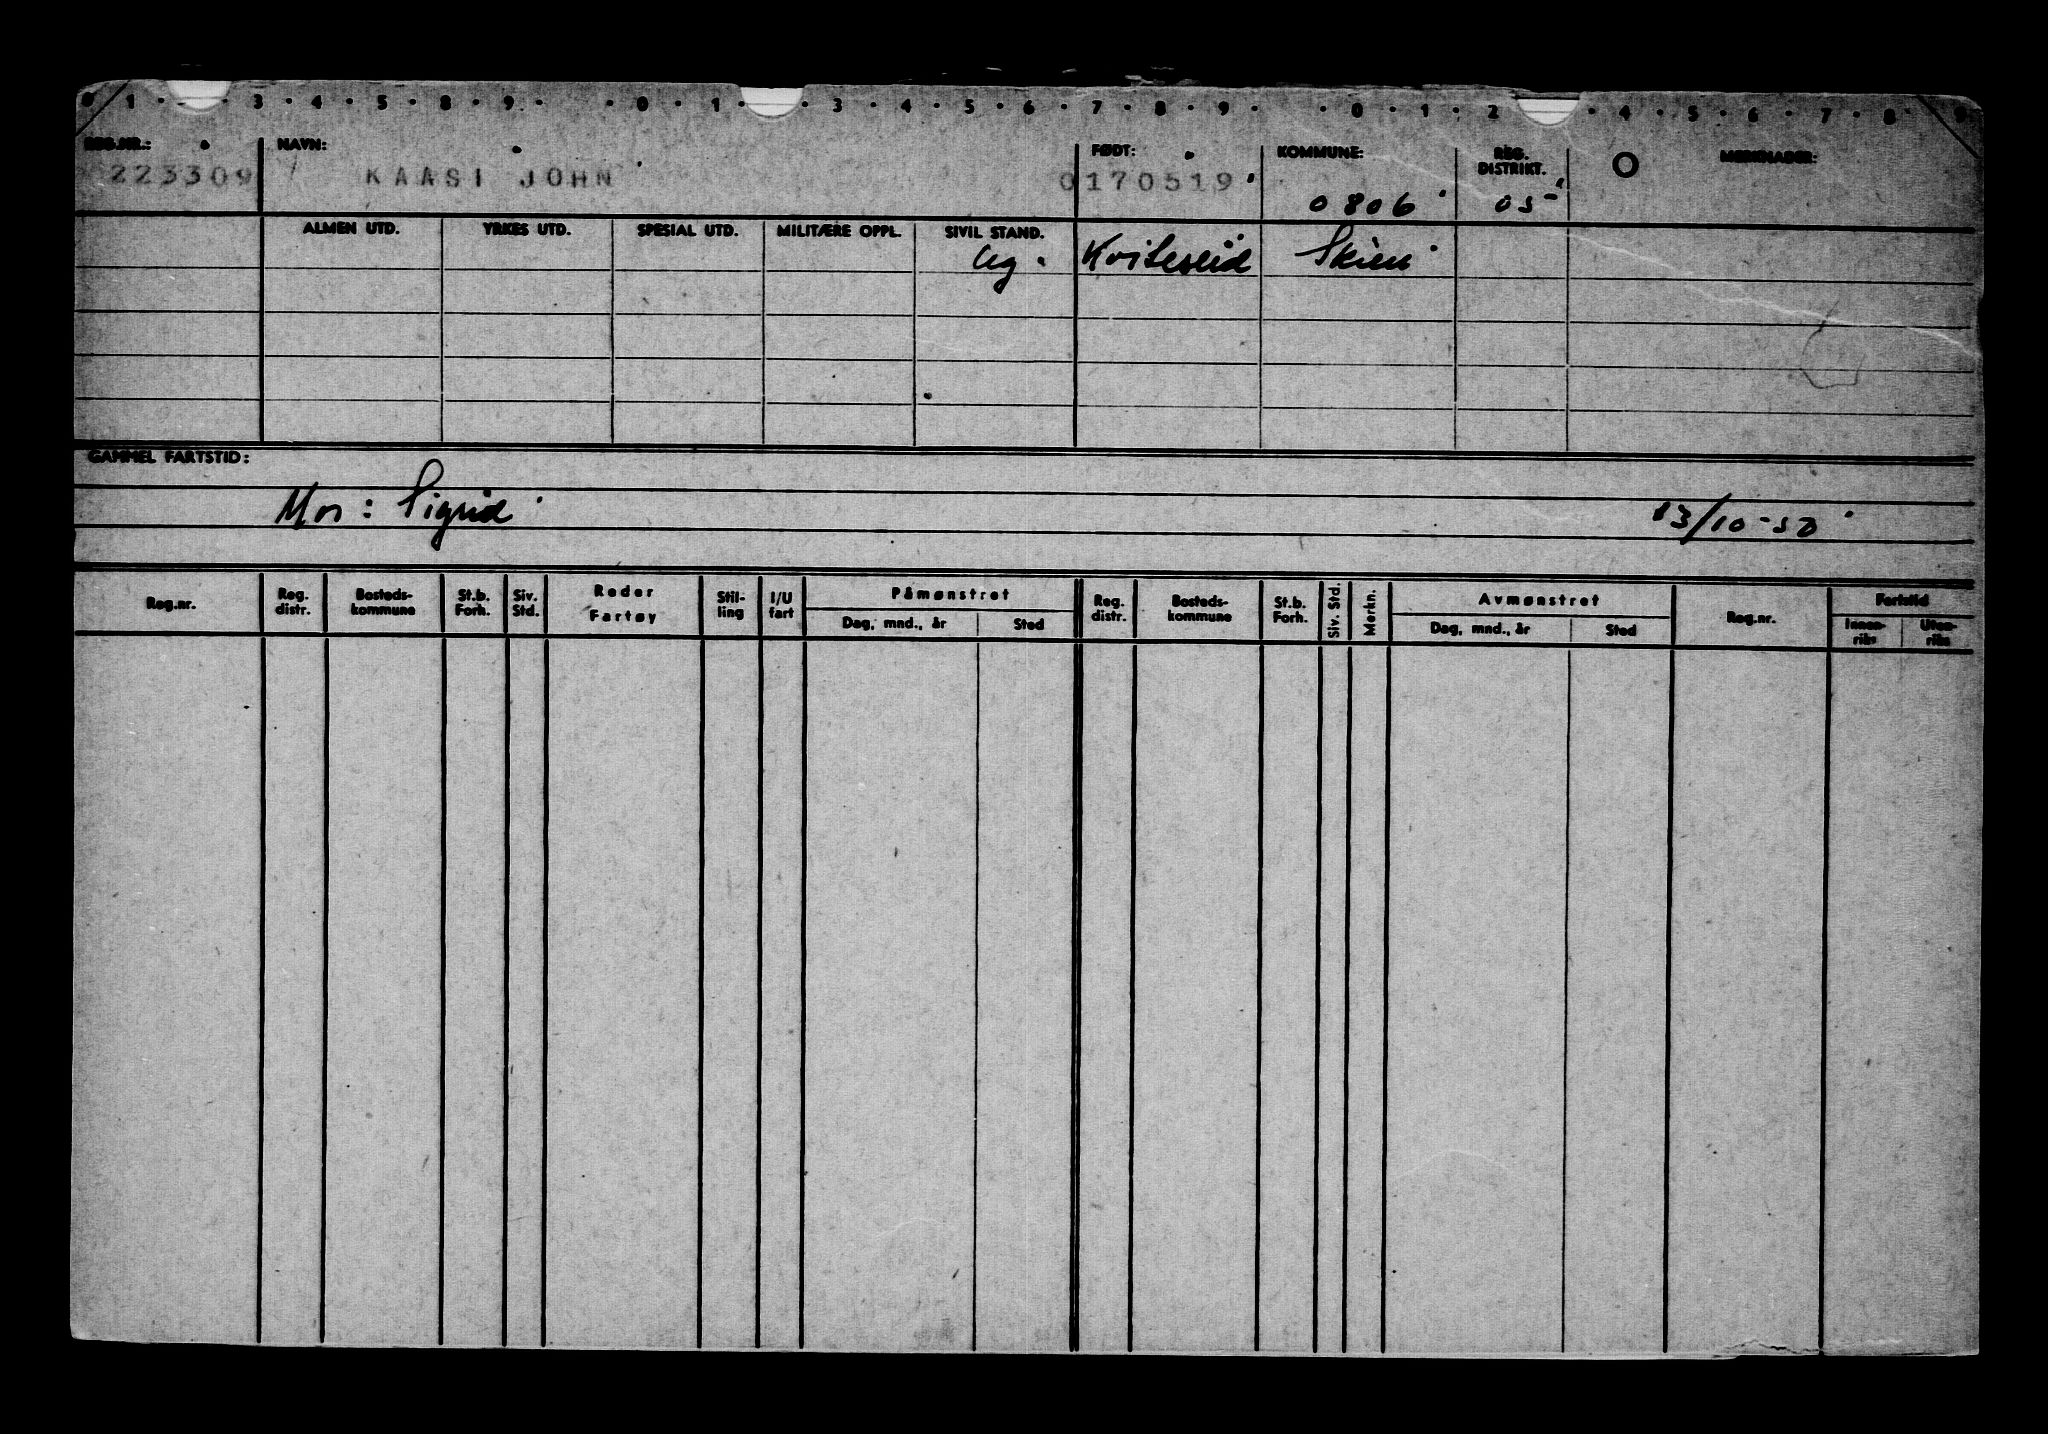 0 1 · · 3 · 4 · 5 · 8 · 9 · · 0 · 1 · · 3 · 4 · 5 · 6 · 7 · 8 · 9 · · 0 · 1 · 2 · 4 · 5 · 6 · 7 · 8 9
REG.NR.: NAVN: FØDT: KOMMUNE: REG. DISTRIKT. MERKNADER:
223309 KAASI JOHN 0170519 0806 05
ALMEN UTD. YRKES UTD. SPESIAL UTD. MILITÆRE OPPL. SIVIL STAND.
Ug. Kviteseid Skien
GAMMEL FARTSTID:
Mor: Sigrid 13/10-50
Reg.nr. Reg. distr. Bosteds-kommune St.b. Forh. Siv. Std. Reder Fartøy Stil-ling I/U fart Påmønstret Reg. distr. Bosteds-kommune St.b. Forh. Siv. Std. Merkn. Avmønstret Reg.nr. Fartstid
Dag, mnd., år Sted Dag, mnd., år Sted Innen-riks Uten-riks